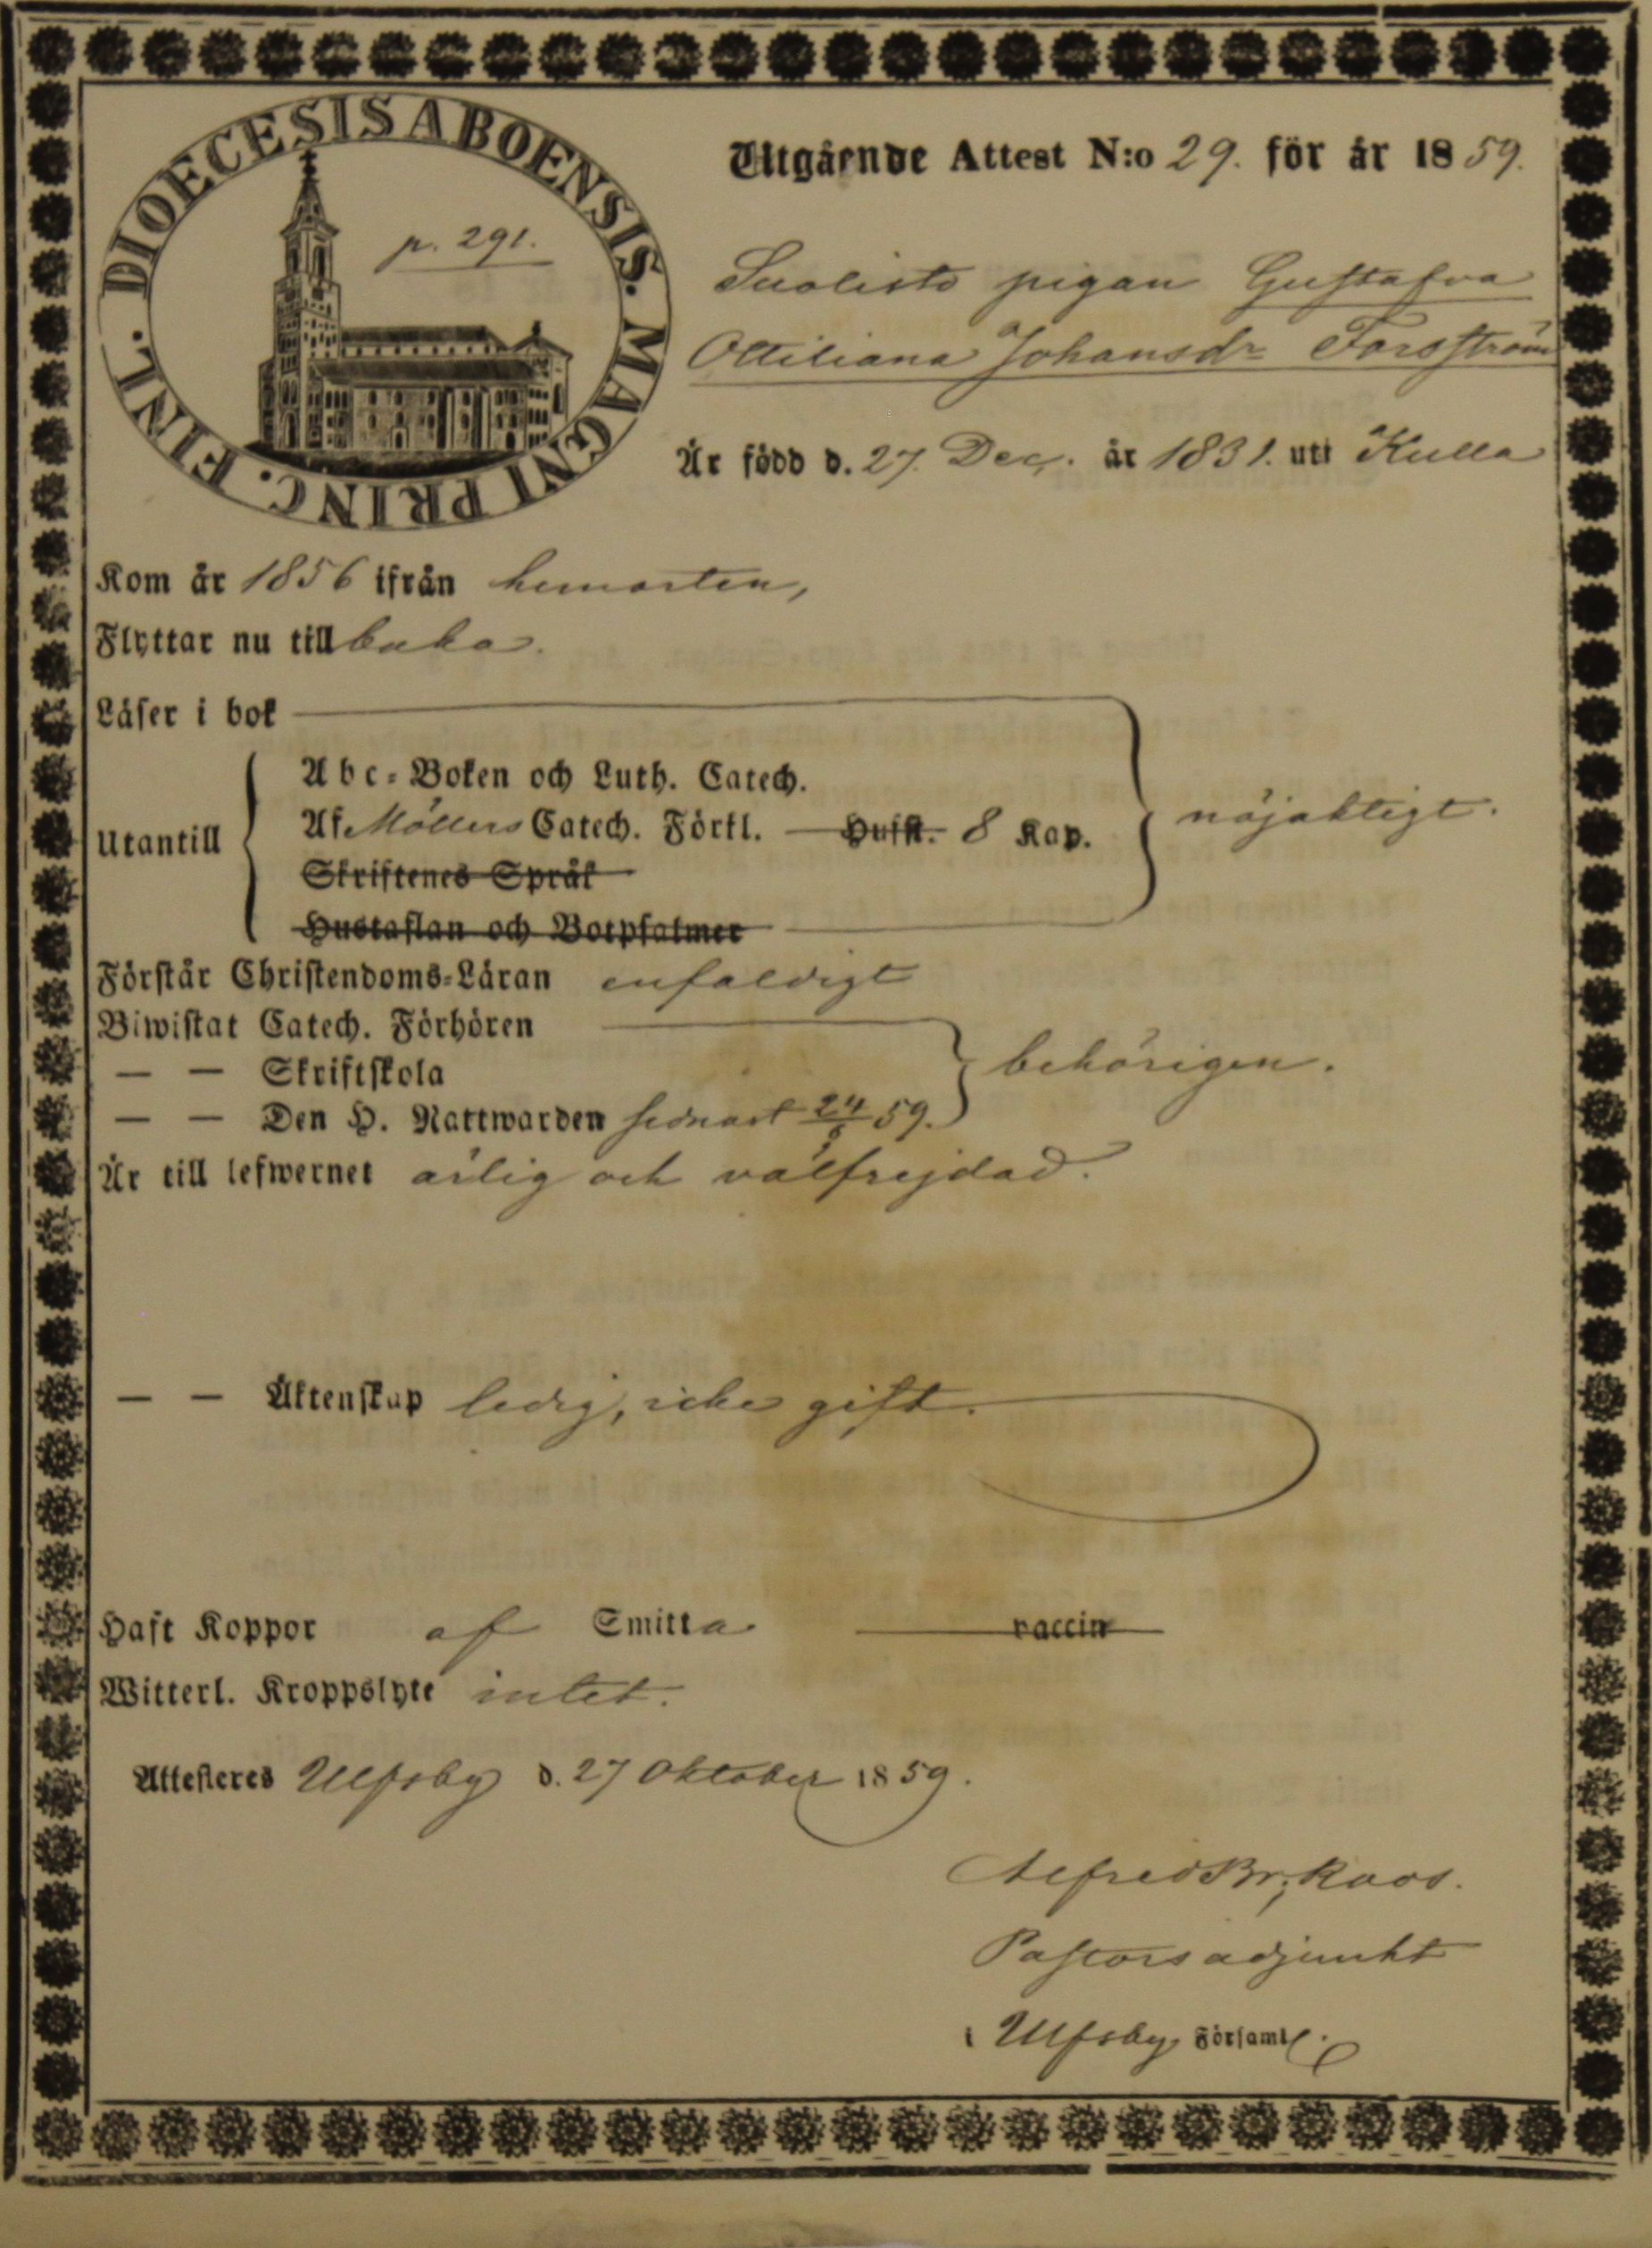 DIOECESIS ABOENSIS. MAGNI PRINC. FINL.
p. 291.
Utgående Attest N:o 29. för år 1859.
Suolisto pigan Gustafva
Ottiliana Johansdr Forsström
Är född d. 27. Dec. år 1831. uti Kulla
Kom år 1856 ifrån hemorten,
Flyttar nu tillbaka.
Läser i bok
Utantill
Abc-Boken och Luth. Catech.
Af Möllers Catech. Förkl. Hufst. 8 Kap.
nöjaktigt.
Skriftenes Språk
Hustaflan och Botpsalmer
Förstår Christendoms-Läran enfaldigt
Biwistat Catech. Förhören
— — Skriftskola
behörigen.
— — Den H. Nattwarden sednast 24/8 59.
Är till lefwernet ärlig och välfrejdad.
— — Äktenskap ledig, icke gift.
Haft Koppor af Smitta vaccin
Witterl. Kroppslyte intet.
Attesteres Ulfsby d. 27 Oktober 1859.
Alfred Br; Roos.
Pastors adjunkt
i Ulfsby Församl.